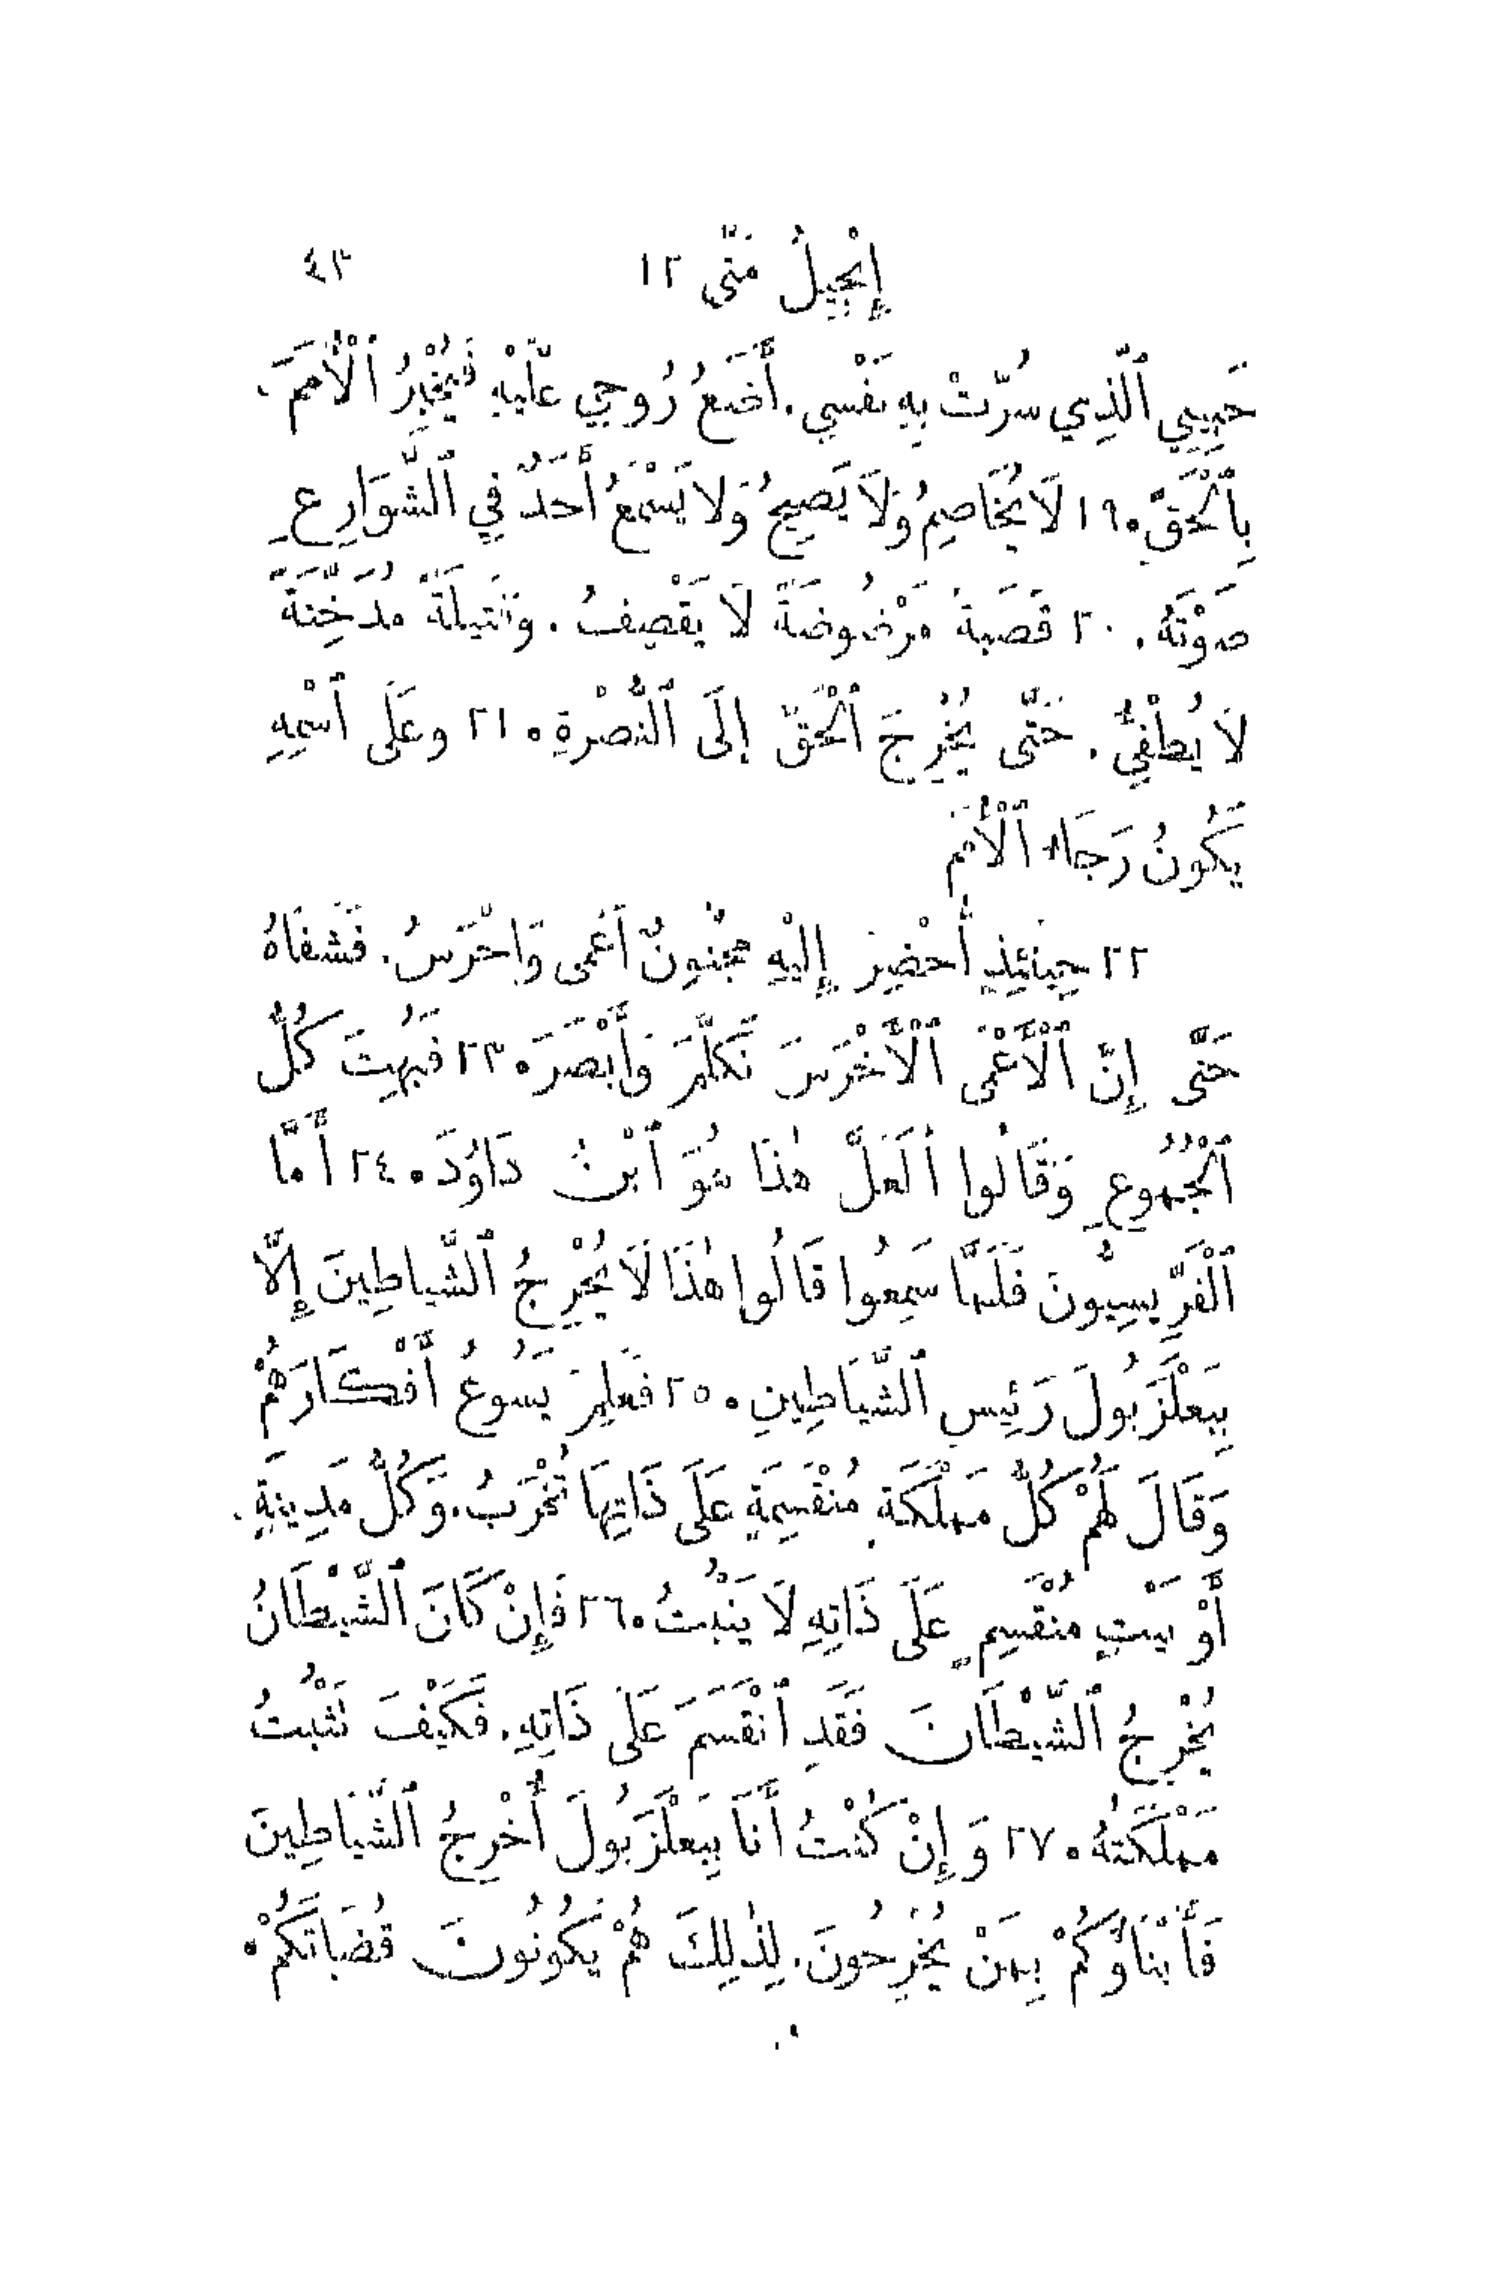 إِنْجِيلُ مَتَّى ١٢ ٤٣
حَبِيبِي ٱلَّذِي سُرَّتْ بِهِ نَفْسِي. أَضَعُ رُوحِي عَلَيْهِ فَيُخْبِرُ ٱلْأُمَمَ
بِٱلْحَقِّ. ١٩ لَا يُخَاصِمُ وَلَا يَصِيحُ وَلَا يَسْمَعُ أَحَدٌ فِي ٱلشَّوَارِعِ
صَوْتَهُ. ٢٠ قَصَبَةً مَرْضُوضَةً لَا يَقْصِفُ. وَفَتِيلَةً مُدَخِّنَةً
لَا يُطْفِئُ. حَتَّى يُخْرِجَ ٱلْحَقَّ إِلَى ٱلنُّصْرَةِ. ٢١ وَعَلَى ٱسْمِهِ
يَكُونُ رَجَاءُ ٱلْأُمَمِ
٢٢ حِينَئِذٍ أُحْضِرَ إِلَيْهِ مَجْنُونٌ أَعْمَى وَأَخْرَسُ. فَشَفَاهُ
حَتَّى إِنَّ ٱلْأَعْمَى ٱلْأَخْرَسَ تَكَلَّمَ وَأَبْصَرَ. ٢٣ فَبُهِتَ كُلُّ
ٱلْجُمُوعِ وَقَالُوا أَلَعَلَّ هٰذَا هُوَ ٱبْنُ دَاوُدَ. ٢٤ أَمَّا
ٱلْفَرِّيسِيُّونَ فَلَمَّا سَمِعُوا قَالُوا هٰذَا لَا يُخْرِجُ ٱلشَّيَاطِينَ إِلَّا
بِبَعْلَزَبُولَ رَئِيسِ ٱلشَّيَاطِينِ. ٢٥ فَعَلِمَ يَسُوعُ أَفْكَارَهُمْ
وَقَالَ لَهُمْ كُلُّ مَمْلَكَةٍ مُنْقَسِمَةٍ عَلَى ذَاتِهَا تُخْرَبُ. وَكُلُّ مَدِينَةٍ
أَوْ بَيْتٍ مُنْقَسِمٍ عَلَى ذَاتِهِ لَا يَثْبُتُ. ٢٦ فَإِنْ كَانَ ٱلشَّيْطَانُ
يُخْرِجُ ٱلشَّيْطَانَ فَقَدِ ٱنْقَسَمَ عَلَى ذَاتِهِ. فَكَيْفَ تَثْبُتُ
مَمْلَكَتُهُ. ٢٧ وَإِنْ كُنْتُ أَنَا بِبَعْلَزَبُولَ أُخْرِجُ ٱلشَّيَاطِينَ
فَأَبْنَاؤُكُمْ بِمَنْ يُخْرِجُونَ. لِذٰلِكَ هُمْ يَكُونُونَ قُضَاتَكُمْ.